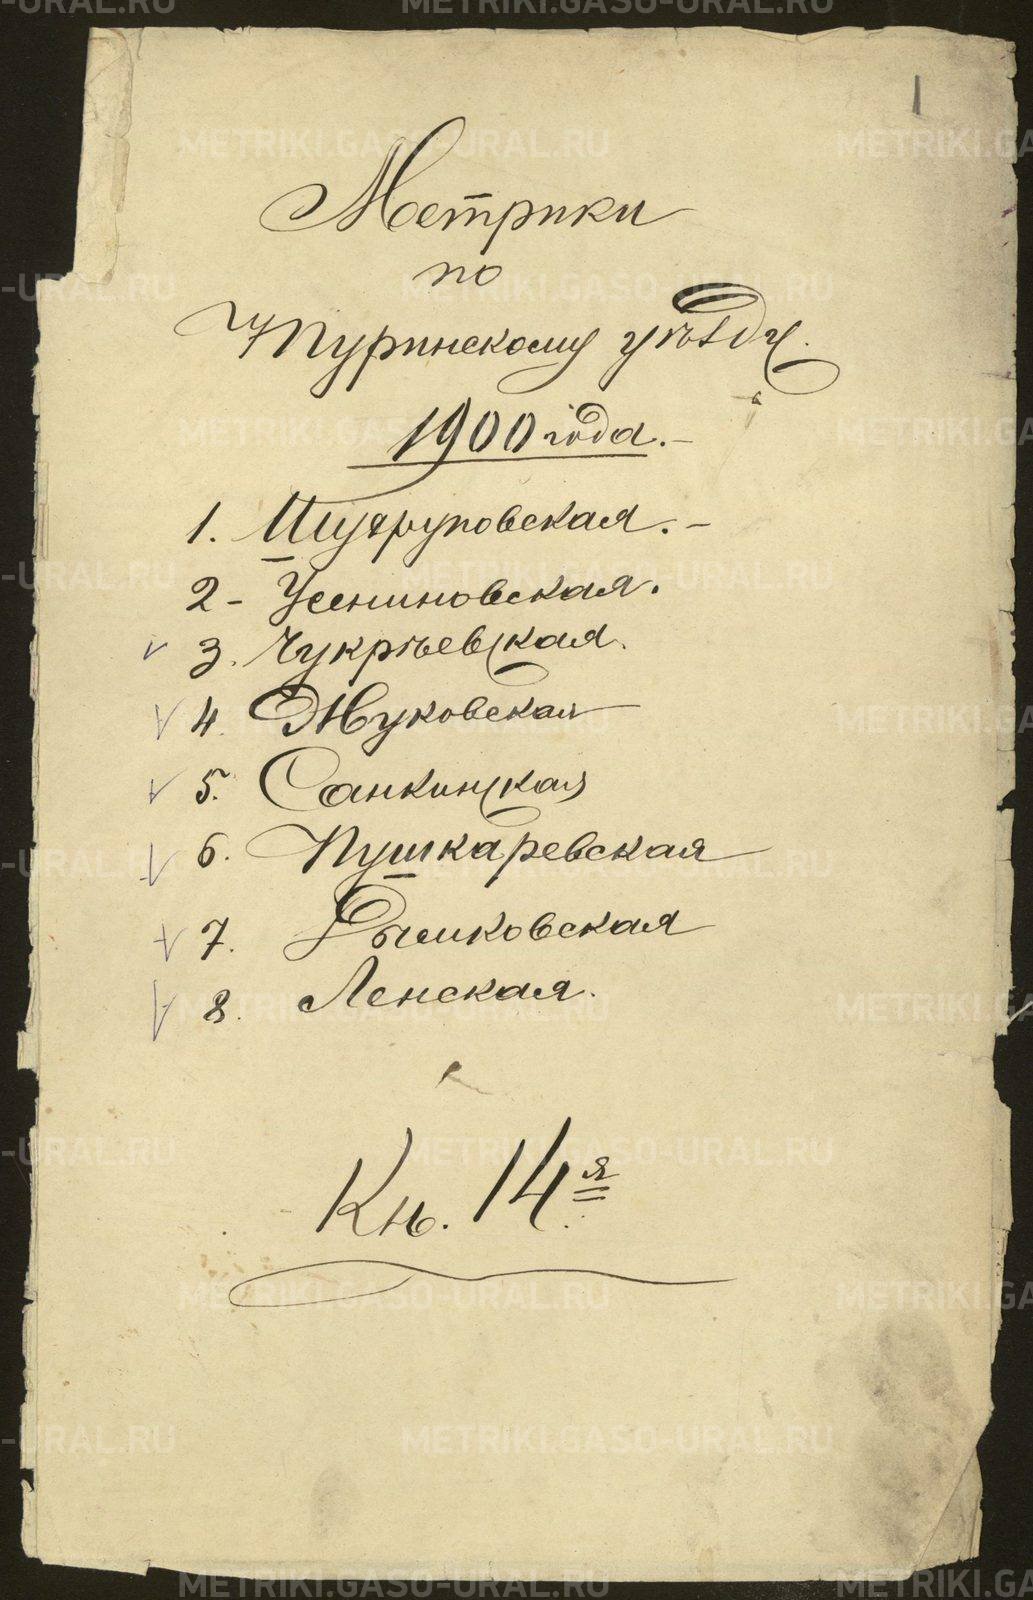 1
Метрики
по
Туринскому уѣзду.
1900 года.-
1. Шухруповская.-
2- Усениновская.
3. Чукрѣевская.
4. Жуковская
5. Санкинская
6. Пушкаревская
7. Рычковская
8. Ленская.
Кн. 14я
METRIKI.GASO-URAL.RU